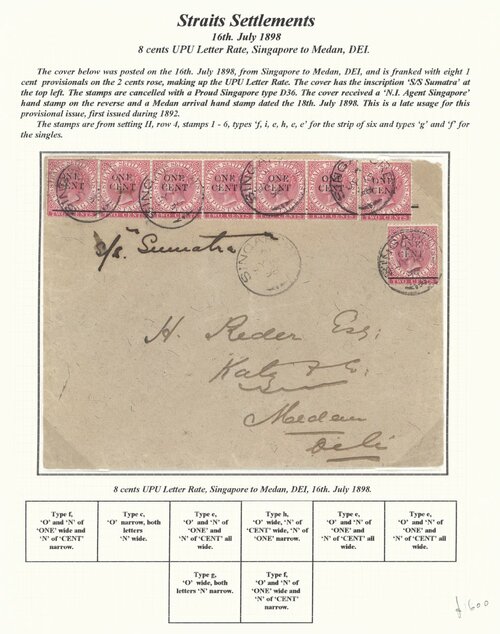 Straits Settlements
16th. July 1898
8 cents UPU Letter Rate, Singapore to Medan, DEI.
The cover below was posted on the 16th. July 1898, from Singapore to Medan, DEI, and is franked with eight 1
cent provisionals on the 2 cents rose, making up the UPU Letter Rate. The cover has the inscription 'S/S Sumatra' at
the top left. The stamps are cancelled with a Proud Singapore type D36. The cover received a 'N.I. Agent Singapore'
hand stamp on the reverse and a Medan arrival hand stamp dated the 18th. July 1898. This is a late usage for this
provisional issue, first issued during 1892.
The stamps are from setting II, row 4, stamps 1 - 6, types 'f, i, e, h, e, e' for the strip of six and types 'g' and 'f' for
the singles.
ONE CENT ONE CENT ONE CENT ONE CENT ONE CENT ONE CENT ONE CENT
TWO CENTS TWO CENTS TWO CENTS TWO CENTS TWO CENTS TWO CENTS
s/s "Sumatra"
SINGAPORE
TWO CENTS
H. Reder Esq:
Katz & Co.
Medan
Deli
8 cents UPU Letter Rate, Singapore to Medan, DEI, 16th. July 1898.
Type f, 'O' and 'N' of 'ONE' wide and 'N' of 'CENT' narrow.
Type c, 'O' narrow, both letters 'N' wide.
Type e, 'O' and 'N' of 'ONE' and 'N' of 'CENT' all wide.
Type h, 'O' wide, 'N' of 'CENT' wide, 'N' of 'ONE' narrow.
Type e, 'O' and 'N' of 'ONE' and 'N' of 'CENT' all wide.
Type e, 'O' and 'N' of 'ONE' and 'N' of 'CENT' all wide.
Type g, 'O' wide, both letters 'N' narrow.
Type f, 'O' and 'N' of 'ONE' wide and 'N' of 'CENT' narrow.
£600